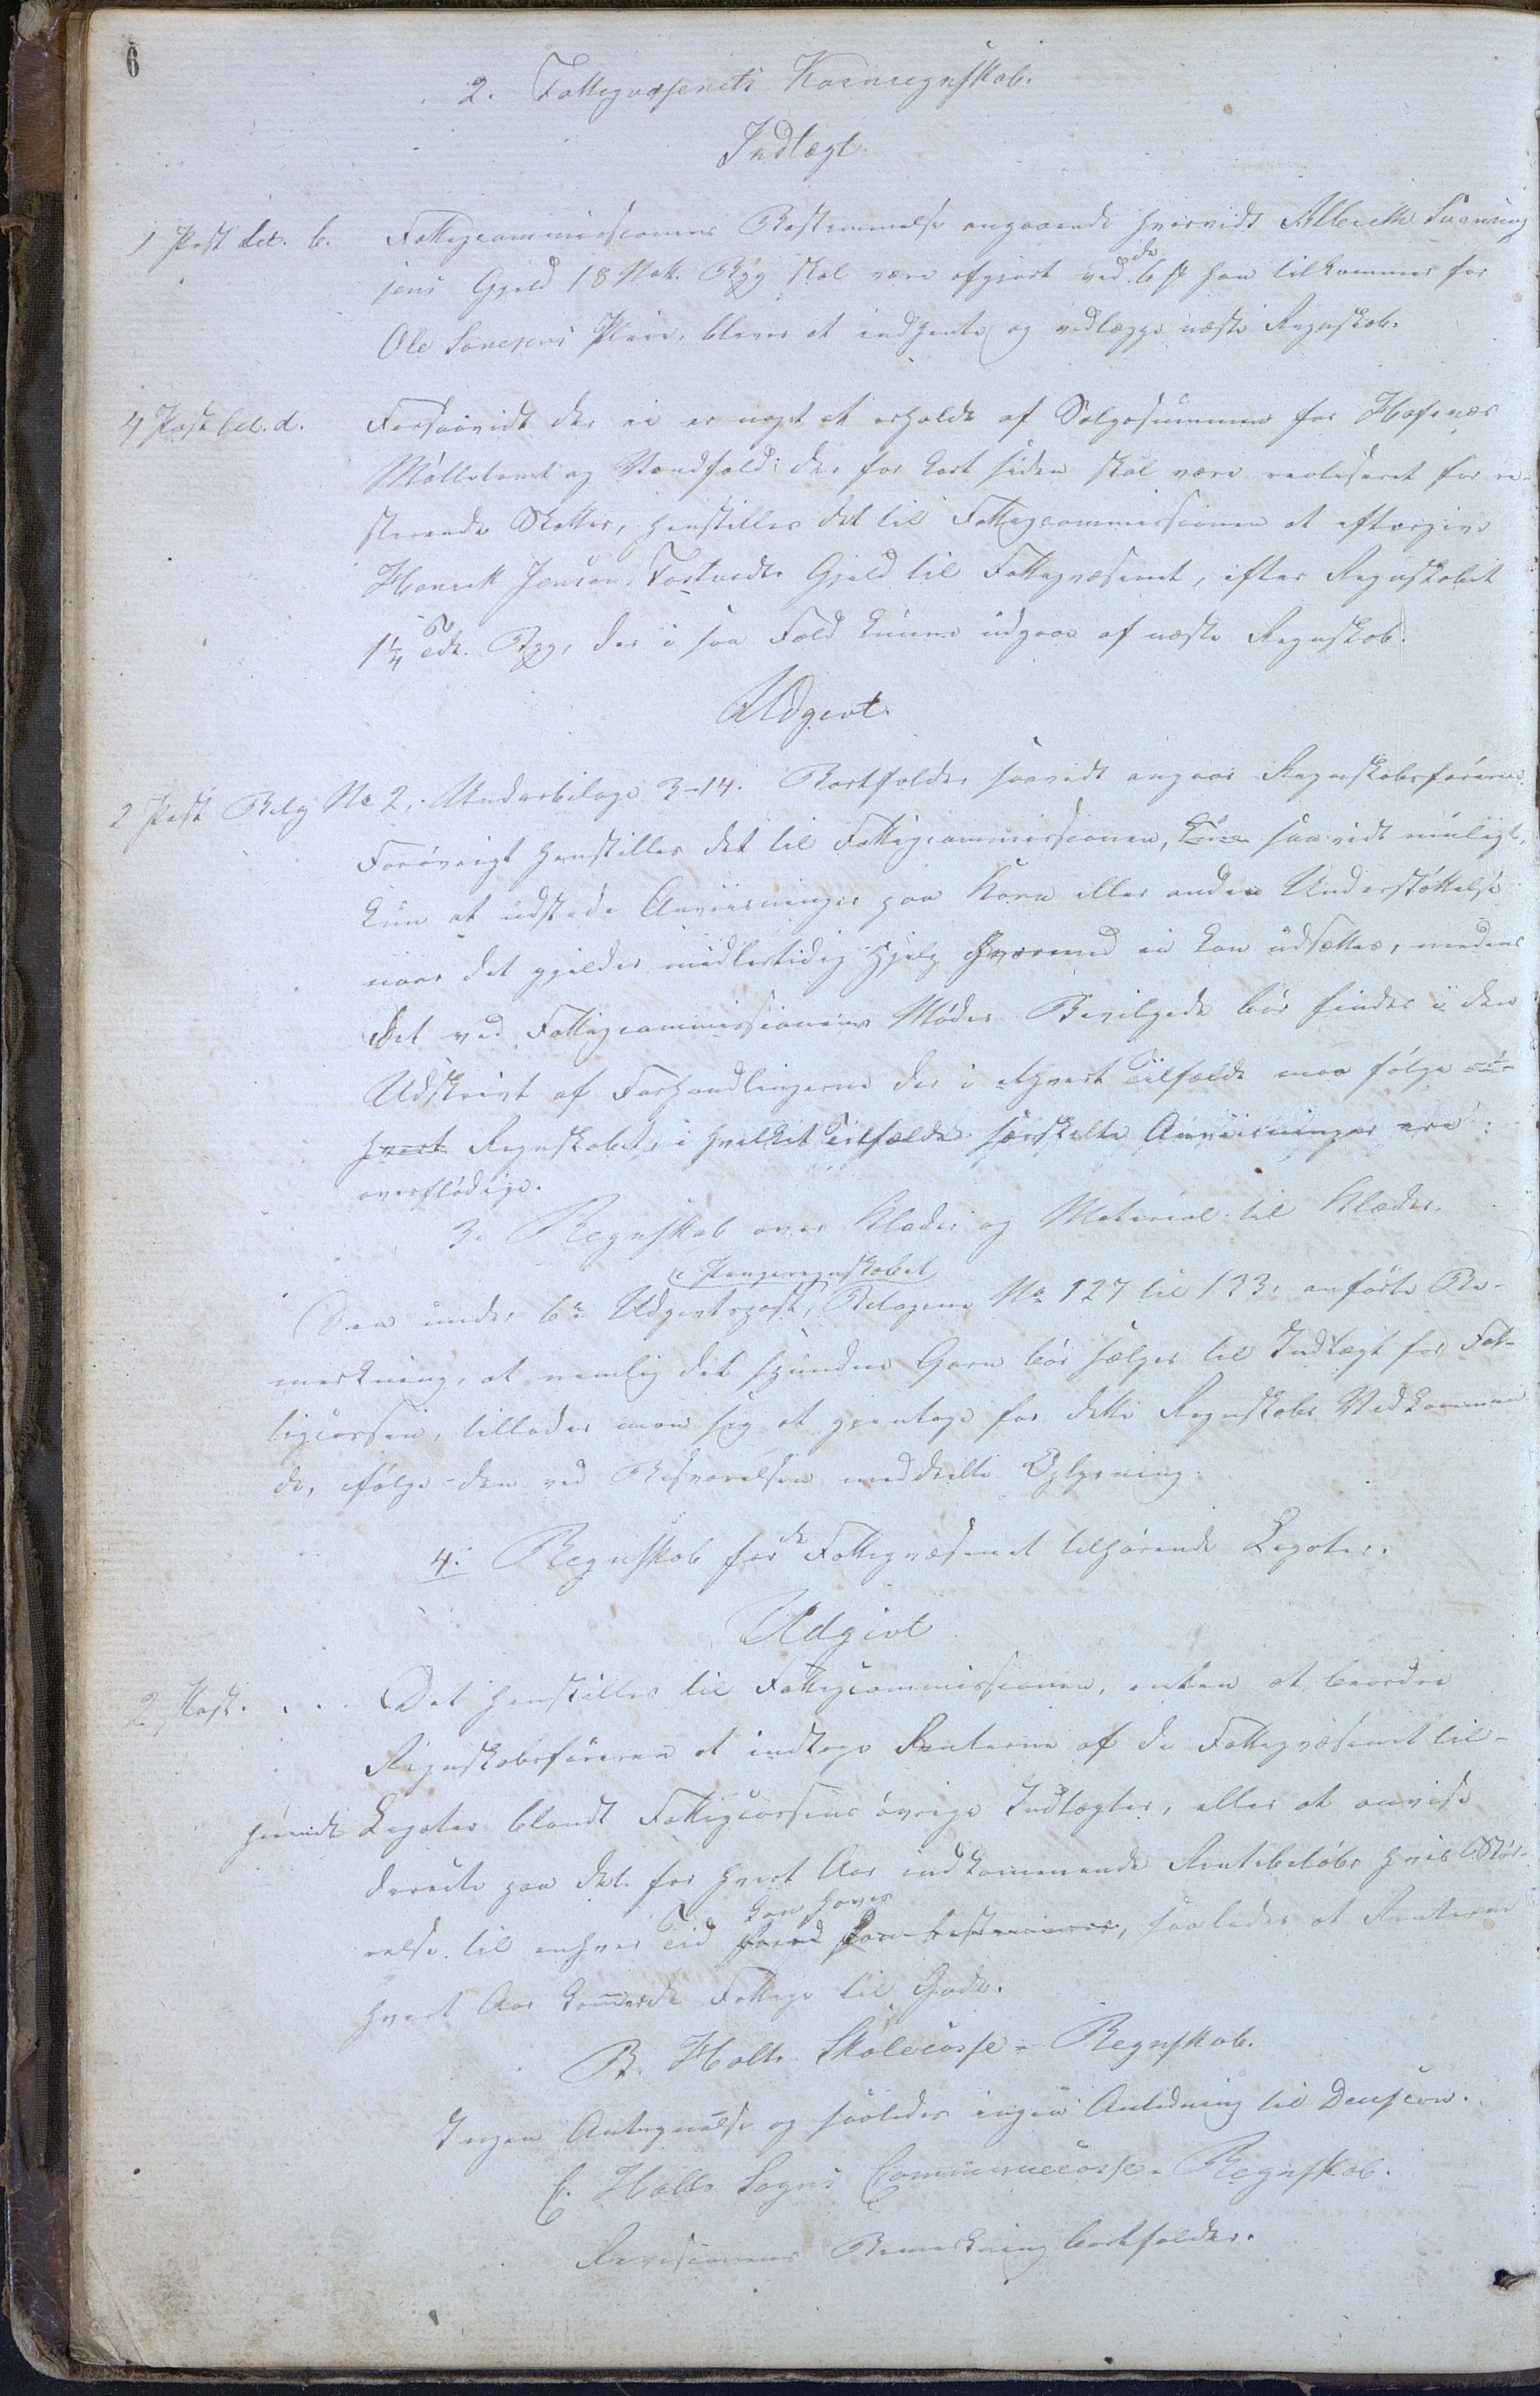 6
2. Fattigvæsenets Kornregnskab.
Indtægt.
1 Post Lit. b. Fattigcommissionens Bestemmelse angaaende hvorvidt Albreth Svennings
sens Gjeld 18 Mk. Byg skal være afgjort ved de 6 han tilkommer for
Ole Pleie, bliver at indhente og vedlægge næste Regnskab.
4 Post Lit. d. Forsaavidt der ei er noget at erholde af Salgssummen for Hafsnæs
Mølletomt og Vandfald: der for kort siden skal være realiseret for re-
sterende Skatter, henstilles det til Fattigcommissionen at eftergive
Henrik Jensen Gjeld til Fattigvæsenet, efter Regnskabet
1 1/4 Byg, der i saa Fald kunne udgaae af næste Regnskab.
Udgivt.
2 Post Bilag No 2, Underbilage 3-14. Bortfalder saavidt angaar Regnskabsføreren.
Forøvrigt henstilles det til Fattigcommissionen, kun saavidt muligt,
kun at udstede Anviisninger paa Korn eller anden Understøttelse
naar det gjelder midlertidig Hjelp hvormed ei kan udsættes, medens
det ved Fattigcommissionens Møder Bevilgede bør findes i den
Udskrivt af Forhandlingerne der i ethvert Tilfælde maa følge et-
hvert Regnskabet, i hvilket Tilfælde særskilte Anviisninger ere
overflødige.
3. Regnskab over Klæder og Material til Klæder.
i Pengeregnskabet
Den under 6te Udgivtspost, Bilagene No 127 til 133, anførte Be-
merkning, at nemlig det spundne Garn bør sælges til Indtægt for Fat-
tigcassen, tillader man sig at gjentage for dette Regnskabs Vedkommen
de, ifølge den ved Besvarelsen meddeelte Oplysning.
4. Regnskab for de Fattigvæsenet tilhørende Legater.
Udgivt
2 Post. . . . Det henstilles til Fattigcommissionen, enten at beordre
Regnskabsføreren at indtage Renterne af de Fattigvæsenet til-
hørende Legater blandt Fattigcassens øvrige Indtægter, eller at anvise
directe paa det for hvert Aar indkommende Rentebeløb hvis Stør-
kan haves
relse til enhver Tid forud kan bestemmes, saaledes at Renterne
hvert Aar komme de Fattige til Gode.
B. Holts Skolecasse-Regnskab.
Ingen Antegnelse og saaledes ingen Anledning til Decision.
C. Holts Sogns Communecasse-Regnskab.
Revisionens Bemerkning bortfalder.